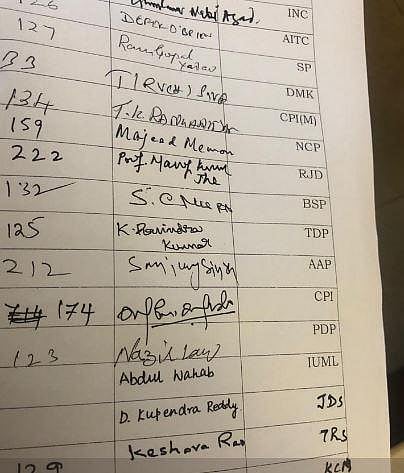 126 Ghulam Nabi Azad. INC
127 DEREK O'BRIEN AITC
Ramgopal
Yadav SP
33 TIRUCHI SIVA DMK
134 T.K. RANGARAJAN CPI(M)
159 Majeed Memon NCP
222 Prof. Manoj Kumar
Jha RJD
132 S.C. Misra BSP
125 K. Ravindra
Kumar TDP
212 Sanjay Singh AAP
174 CPI
PDP
123 Nazir Laway
Abdul Wahab IUML
D. Kupendra Reddy JDS
Keshava Rao TRS
129 KCM